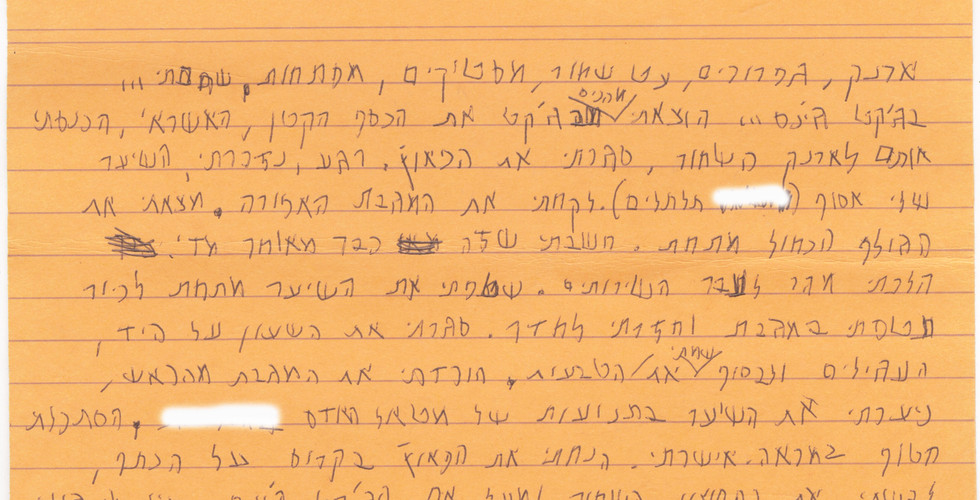 ארנק, גפרורים, עט שחור, מסטיקים, מפתחות, שחסתי...
בג'קט ג'ינס... הוצאתי מהכיס בג'קט את הכסף הקטן, האשראי, הכנסתי
אותם לארנק השחור, סגרתי את הפאוץ'. רגע, נזכרתי, השיער
שלי אסוף ( תלתלים). לקחתי את המגבת האפורה. מצאתי את
הגולף הכחול מתחת. חשבתי שזה כבר מאוחר מדי.
הלכתי מהר לעבר השירותים. שטפתי את השיער מתחת לכיור
תפסתי במגבת וחזרתי לחדר. סגרתי את השעון על היד,
העגילים ולבסוף שמתי את הטבעות. הורדתי את המגבת מהראש,
ניערתי את השיער בתנועות של מטאטא. הסתכלת
חטוף במראה. אישרתי. הנחתי את הפאוץ' בקדוס על הכתף,